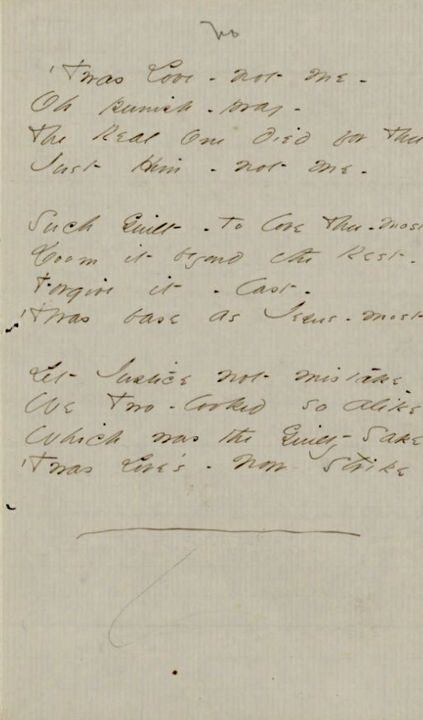 No
'Twas Love - not me -
Oh punish - pray -
The Real One died for Thee
Just Him - not me -
Such Guilt - to love Thee - most
Doom it beyond the Rest -
Forgive it - last -
'Twas base as Jesus - most
Let Justice not mistake
We Two - looked so alike
Which was the Guilty - Sake
'Twas Love's - Now strike